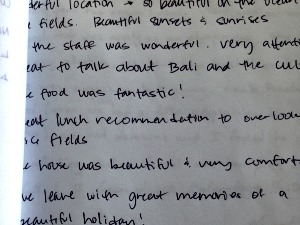 derful location → so beautiful in the ocean
fields. Beautiful sunsets & sunrises
the staff was wonderful. very attenti
eat to talk about Bali and the cul
food was fantastic!
eat lunch recommendation to overlook
ce fields
house was beautiful & very comfort
we leave with great memories of a
beautiful holiday!